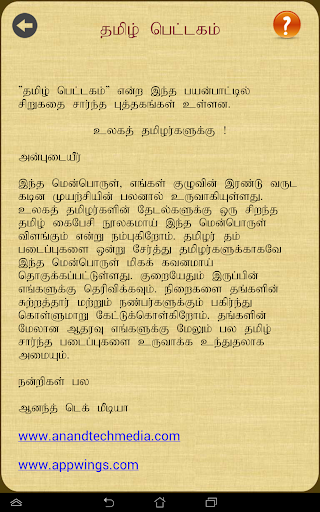 தமிழ் பெட்டகம்
"தமிழ் பெட்டகம்" என்ற இந்த பயன்பாட்டில்
சிறுகதை சார்ந்த புத்தகங்கள் உள்ளன.
உலகத் தமிழர்களுக்கு !
அன்புடையீர்
இந்த மென்பொருள், எங்கள் குழுவின் இரண்டு வருட
கடின முயற்சியின் பலனால் உருவாகியுள்ளது.
உலகத் தமிழர்களின் தேடல்களுக்கு ஒரு சிறந்த
தமிழ் கைபேசி நூலகமாய் இந்த மென்பொருள்
விளங்கும் என்று நம்புகிறோம். தமிழர் தம்
படைப்புகளை ஒன்று சேர்த்து தமிழர்களுக்காகவே
இந்த மென்பொருள் மிகக் கவனமாய்
தொகுக்கப்பட்டுள்ளது. குறையேதும் இருப்பின்
எங்களுக்கு தெரிவிக்கவும். நிறைகளை தங்களின்
சுற்றத்தார் மற்றும் நண்பர்களுக்கும் பகிர்ந்து
கொள்ளுமாறு கேட்டுக்கொள்கிறோம். தங்களின்
மேலான ஆதரவு எங்களுக்கு மேலும் பல தமிழ்
சார்ந்த படைப்புகளை உருவாக்க உந்துதலாக
அமையும்.
நன்றிகள் பல
ஆனந்த் டெக் மீடியா
www.anandtechmedia.com
www.appwings.com